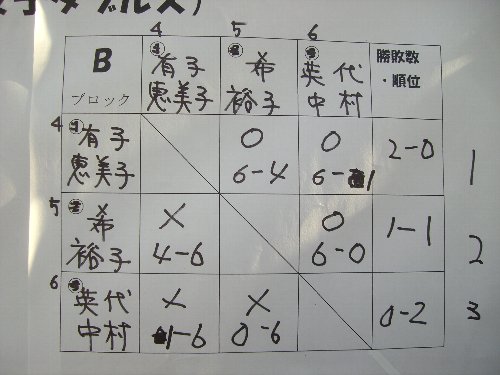 子ダブルス)
4 5 6
B
ブロック
有子
恵美子
希
裕子
英代
中村
勝敗数
・順位
4 有子
恵美子
○
6-4
○
6-1
2-0
1
5 希
裕子
×
4-6
○
6-0
1-1
2
6 英代
中村
×
1-6
×
0-6
0-2
3